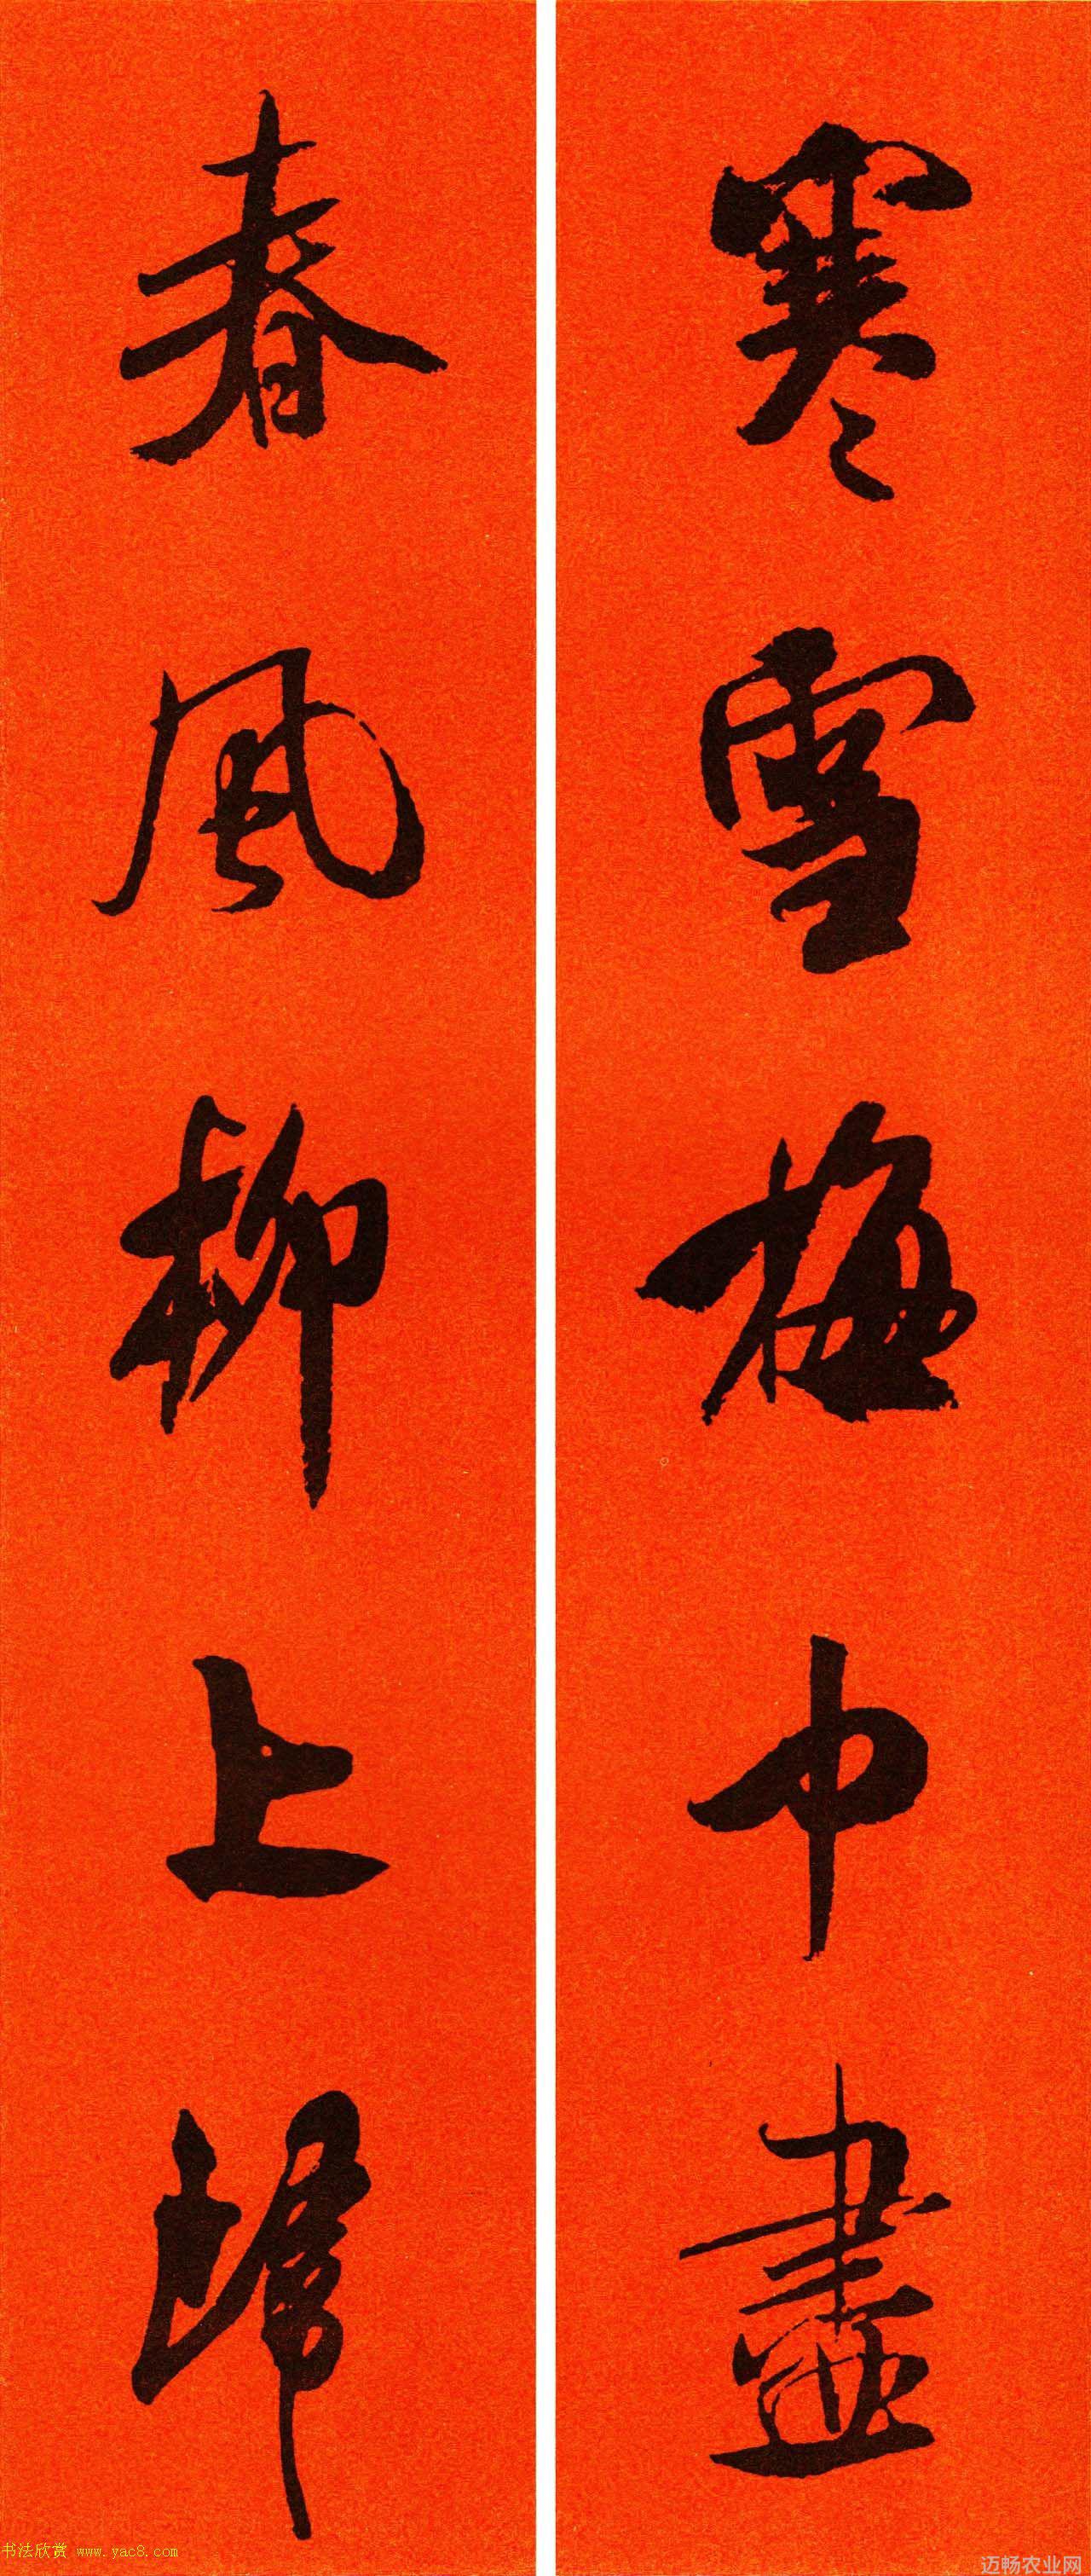 寒雪梅中盡
春風柳上歸
书法欣赏 www.yac8.com
迈畅农业网